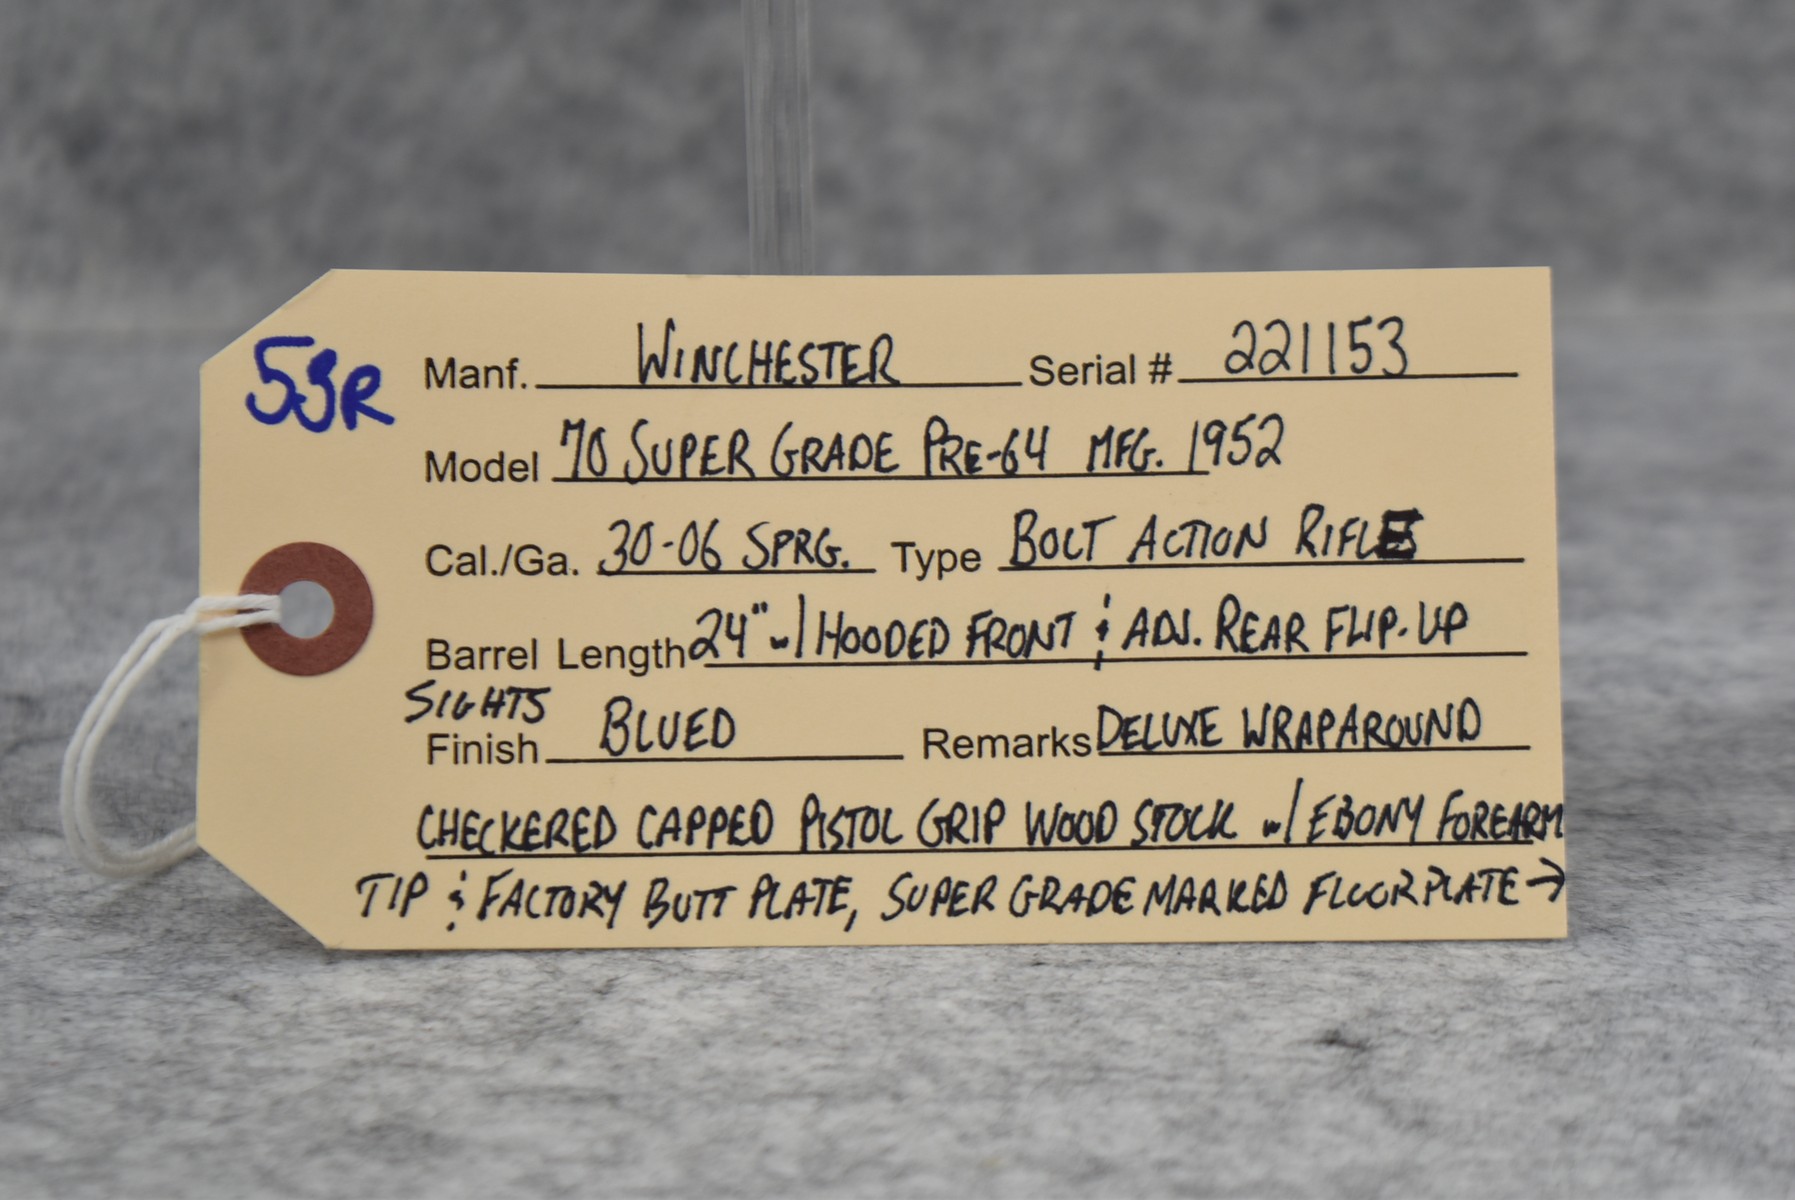 53R
Manf. WINCHESTER Serial # 221153
Model 70 SUPER GRADE PRE-64 MFG. 1952
Cal./Ga. 30-06 SPRG. Type BOLT ACTION RIFLE
Barrel Length 24" w/ HOODED FRONT & ADJ. REAR FLIP-UP
SIGHTS
Finish BLUED Remarks DELUXE WRAPAROUND
CHECKERED CAPPED PISTOL GRIP WOOD STOCK w/ EBONY FOREARM
TIP & FACTORY BUTT PLATE, SUPER GRADE MARKED FLOORPLATE →